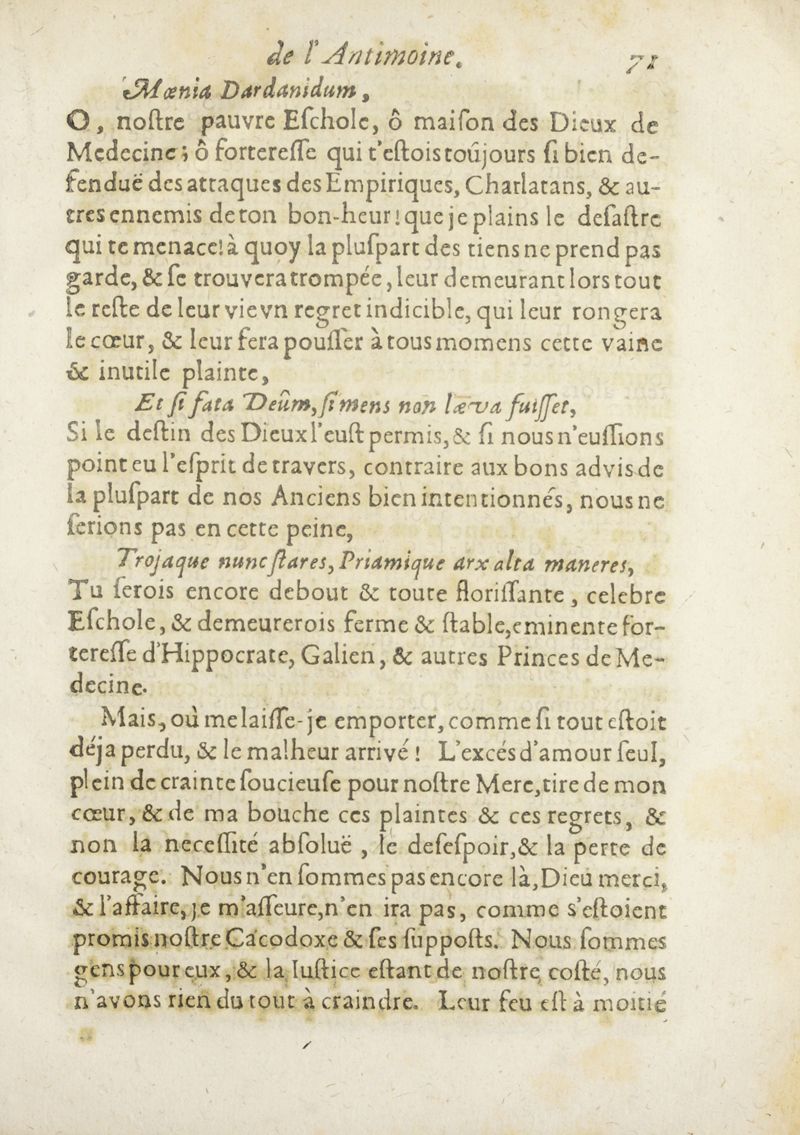 de l'Antimoine. 71
Mœnia Dardanidum,
O, noſtre pauvre Eſchole, ô maiſon des Dieux de
Medecine; ô fortereſſe qui t'eſtois toûjours ſi bien de-
fenduë des attaques des Empiriques, Charlatans, & au-
tres ennemis de ton bon-heur! que je plains le deſaſtre
qui te menace! à quoy la pluſpart des tiens ne prend pas
garde, & ſe trouvera trompée, leur demeurant lors tout
le reſte de leur vie vn regret indicible, qui leur rongera
le cœur, & leur fera pouſſer à tous momens cette vaine
& inutile plainte,
Et ſi fata Deûm, ſi mens non læva fuiſſet,
Si le deſtin des Dieux l'euſt permis, & ſi nous n'euſſions
point eu l'eſprit de travers, contraire aux bons advis de
la pluſpart de nos Anciens bien intentionnés, nous ne
ſerions pas en cette peine,
Trojaque nunc ſtares, Priamique arx alta maneres,
Tu ſerois encore debout & toute floriſſante, celebre
Eſchole, & demeurerois ferme & ſtable, eminente for-
tereſſe d'Hippocrate, Galien, & autres Princes de Me-
decine.
Mais, où me laiſſe-je emporter, comme ſi tout eſtoit
déja perdu, & le malheur arrivé! L'excés d'amour ſeul,
plein de crainte ſoucieuſe pour noſtre Mere, tire de mon
cœur, & de ma bouche ces plaintes & ces regrets, &
non la neceſſité abſoluë, le deſeſpoir, & la perte de
courage. Nous n'en ſommes pas encore là, Dieu merci,
& l'affaire, je m'aſſeure, n'en ira pas, comme s'eſtoient
promis noſtre Cacodoxe & ſes ſuppoſts. Nous ſommes
gens pour eux, & la Iuſtice eſtant de noſtre coſté, nous
n'avons rien du tout à craindre. Leur feu eſt à moitié